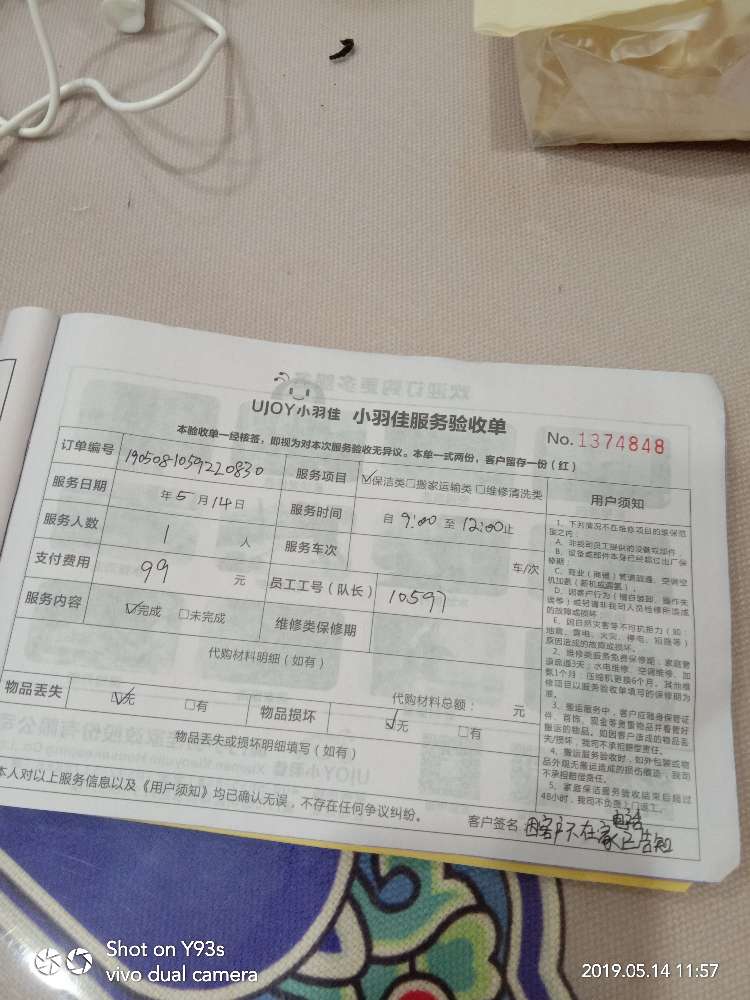 UJOY小羽佳 小羽佳服务验收单
No. 1374848
本验收单一经核签，即视为对本次服务验收无异议。本单一式两份，客户留存一份（红）
订单编号 190508-1059220830 服务项目 ☑保洁类□搬家运输类□维修清洗类
服务日期 年5月14日 服务时间 自 9:00 至 12:00止
服务人数 1 人 服务车次 车/次
支付费用 99 元 员工工号（队长） 10597
服务内容 ☑完成 □未完成 维修类保修期
代购材料明细（如有）
代购材料总额： 元
物品丢失 ☑无 □有 物品损坏 ☑无 □有
物品丢失或损坏明细填写（如有）
本人对以上服务信息以及《用户须知》均已确认无误，不存在任何争议纠纷。
客户签名 因客户不在家已电话告知
用户须知
1、下列情况不在维修项目的维保范围之内：
A、非经司员工提供的设备或部件；
B、设备或部件本身已经超过出厂保修期；
C、商业（商铺）管道疏通、空调空机加氨（新机或漏氨）；
E、因自然灾害等不可抗拒力（如：地震、雷电、火灾、停电、短路等）原因造成的故障或损坏。
2、维修类服务免费保修期：家庭管道疏通3天；水电维修、空调维修、加氨1个月；压缩机更换6个月。其他维修项目以服务验收单填写的保修期为准。
3、搬运服务中，客户应随身保管证件、首饰、现金等贵重物品并看管好搬运的物品。如因客户造成的物品丢失/损坏，我司不承担赔偿责任。
4、搬运服务验收时，如外包装或物品外观无搬运造成的损伤痕迹，我司不承担赔偿责任。
5、家庭保洁服务验收结束后超过48小时，我司不负责上门返工。
Shot on Y93s
vivo dual camera
2019.05.14 11:57